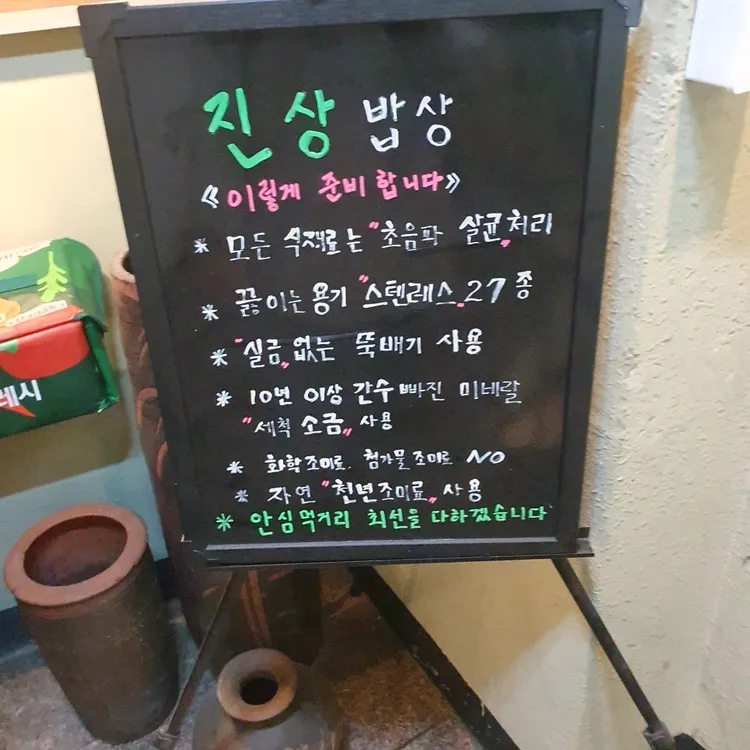 진상 밥상
《이렇게 준비합니다》
* 모든 식재료는 "초음파 살균" 처리
* 끓이는 용기 "스텐레스" 27종
* "실금" 없는 뚝배기 사용
* 10년 이상 간수 빠진 미네랄
"세척 소금" 사용
* 화학조미료. 첨가물조미료 NO
* 자연 "천년조미료" 사용
* 안심먹거리 최선을 다하겠습니다
레시